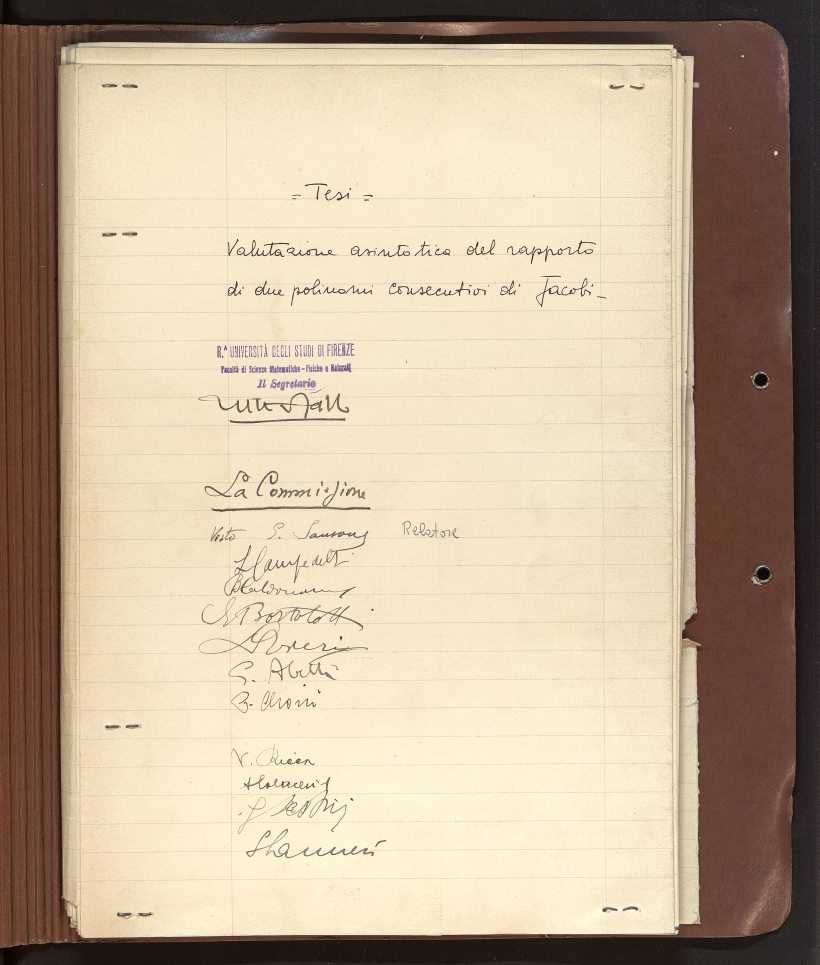 = Tesi =
Valutazione asintotica del rapporto
di due polinomi consecutivi di Jacobi_
R.ᴬ UNIVERSITÀ DEGLI STUDI DI FIRENZE
Facoltà di Scienze Matematiche-Fisiche e Naturali
Il Segretario
La Commissione
Visto G. Sansone Relatore
L Campedelli
E Bortolotti
G. Abetti
V. Ricca